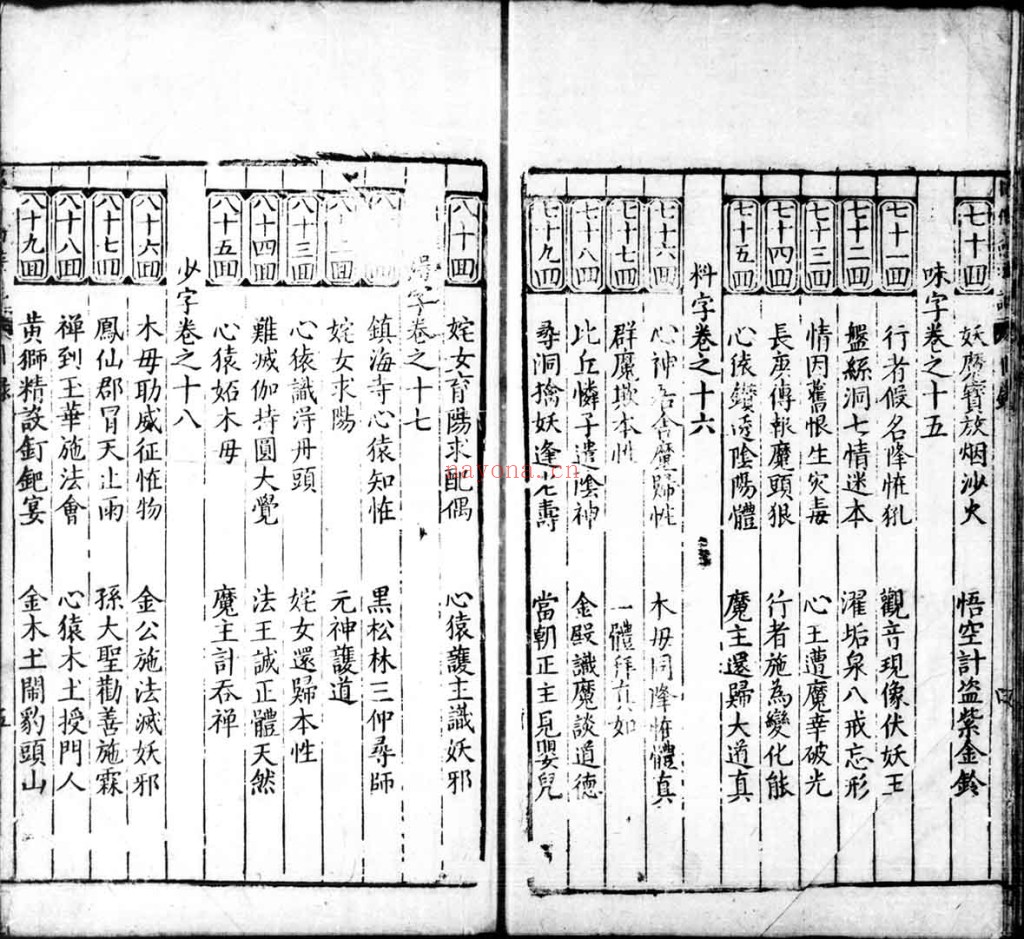 七十回 妖魔寶放烟沙火 悟空計盗紫金鈴
味字卷之十五
七十一回 行者假名降恠犼 觀音現像伏妖王
七十二回 盤絲洞七情迷本 濯垢泉八戒忘形
七十三回 情因舊恨生灾毒 心王遭魔幸破光
七十四回 長庚傳報魔頭狠 行者施為變化能
七十五回 心猿鑽透陰陽體 魔主還歸大道真
料字卷之十六
七十六回 心神居舍魔歸性 木母同降恠體真
七十七回 群魔欺本性 一體拜真如
七十八回 比丘憐子遣陰神 金殿識魔談道德
七十九回 尋洞擒妖逢老壽 當朝正主見嬰兒
八十回 姹女育陽求配偶 心猿護主識妖邪
字卷之十七
八 鎮海寺心猿知恠 黑松林三仲尋師
八十二回 姹女求陽 元神護道
八十三回 心猿識得丹頭 姹女還歸本性
八十四回 難滅伽持圓大覺 法王誠正體天然
八十五回 心猿妬木母 魔主計吞禅
少字卷之十八
八十六回 木母助威征恠物 金公施法滅妖邪
八十七回 鳳仙郡冒天止雨 孫大聖勸善施霖
八十八回 禅到玉華施法會 心猿木土授門人
八十九回 黄獅精設釘鈀宴 金木土閙豹頭山
nayona.cn